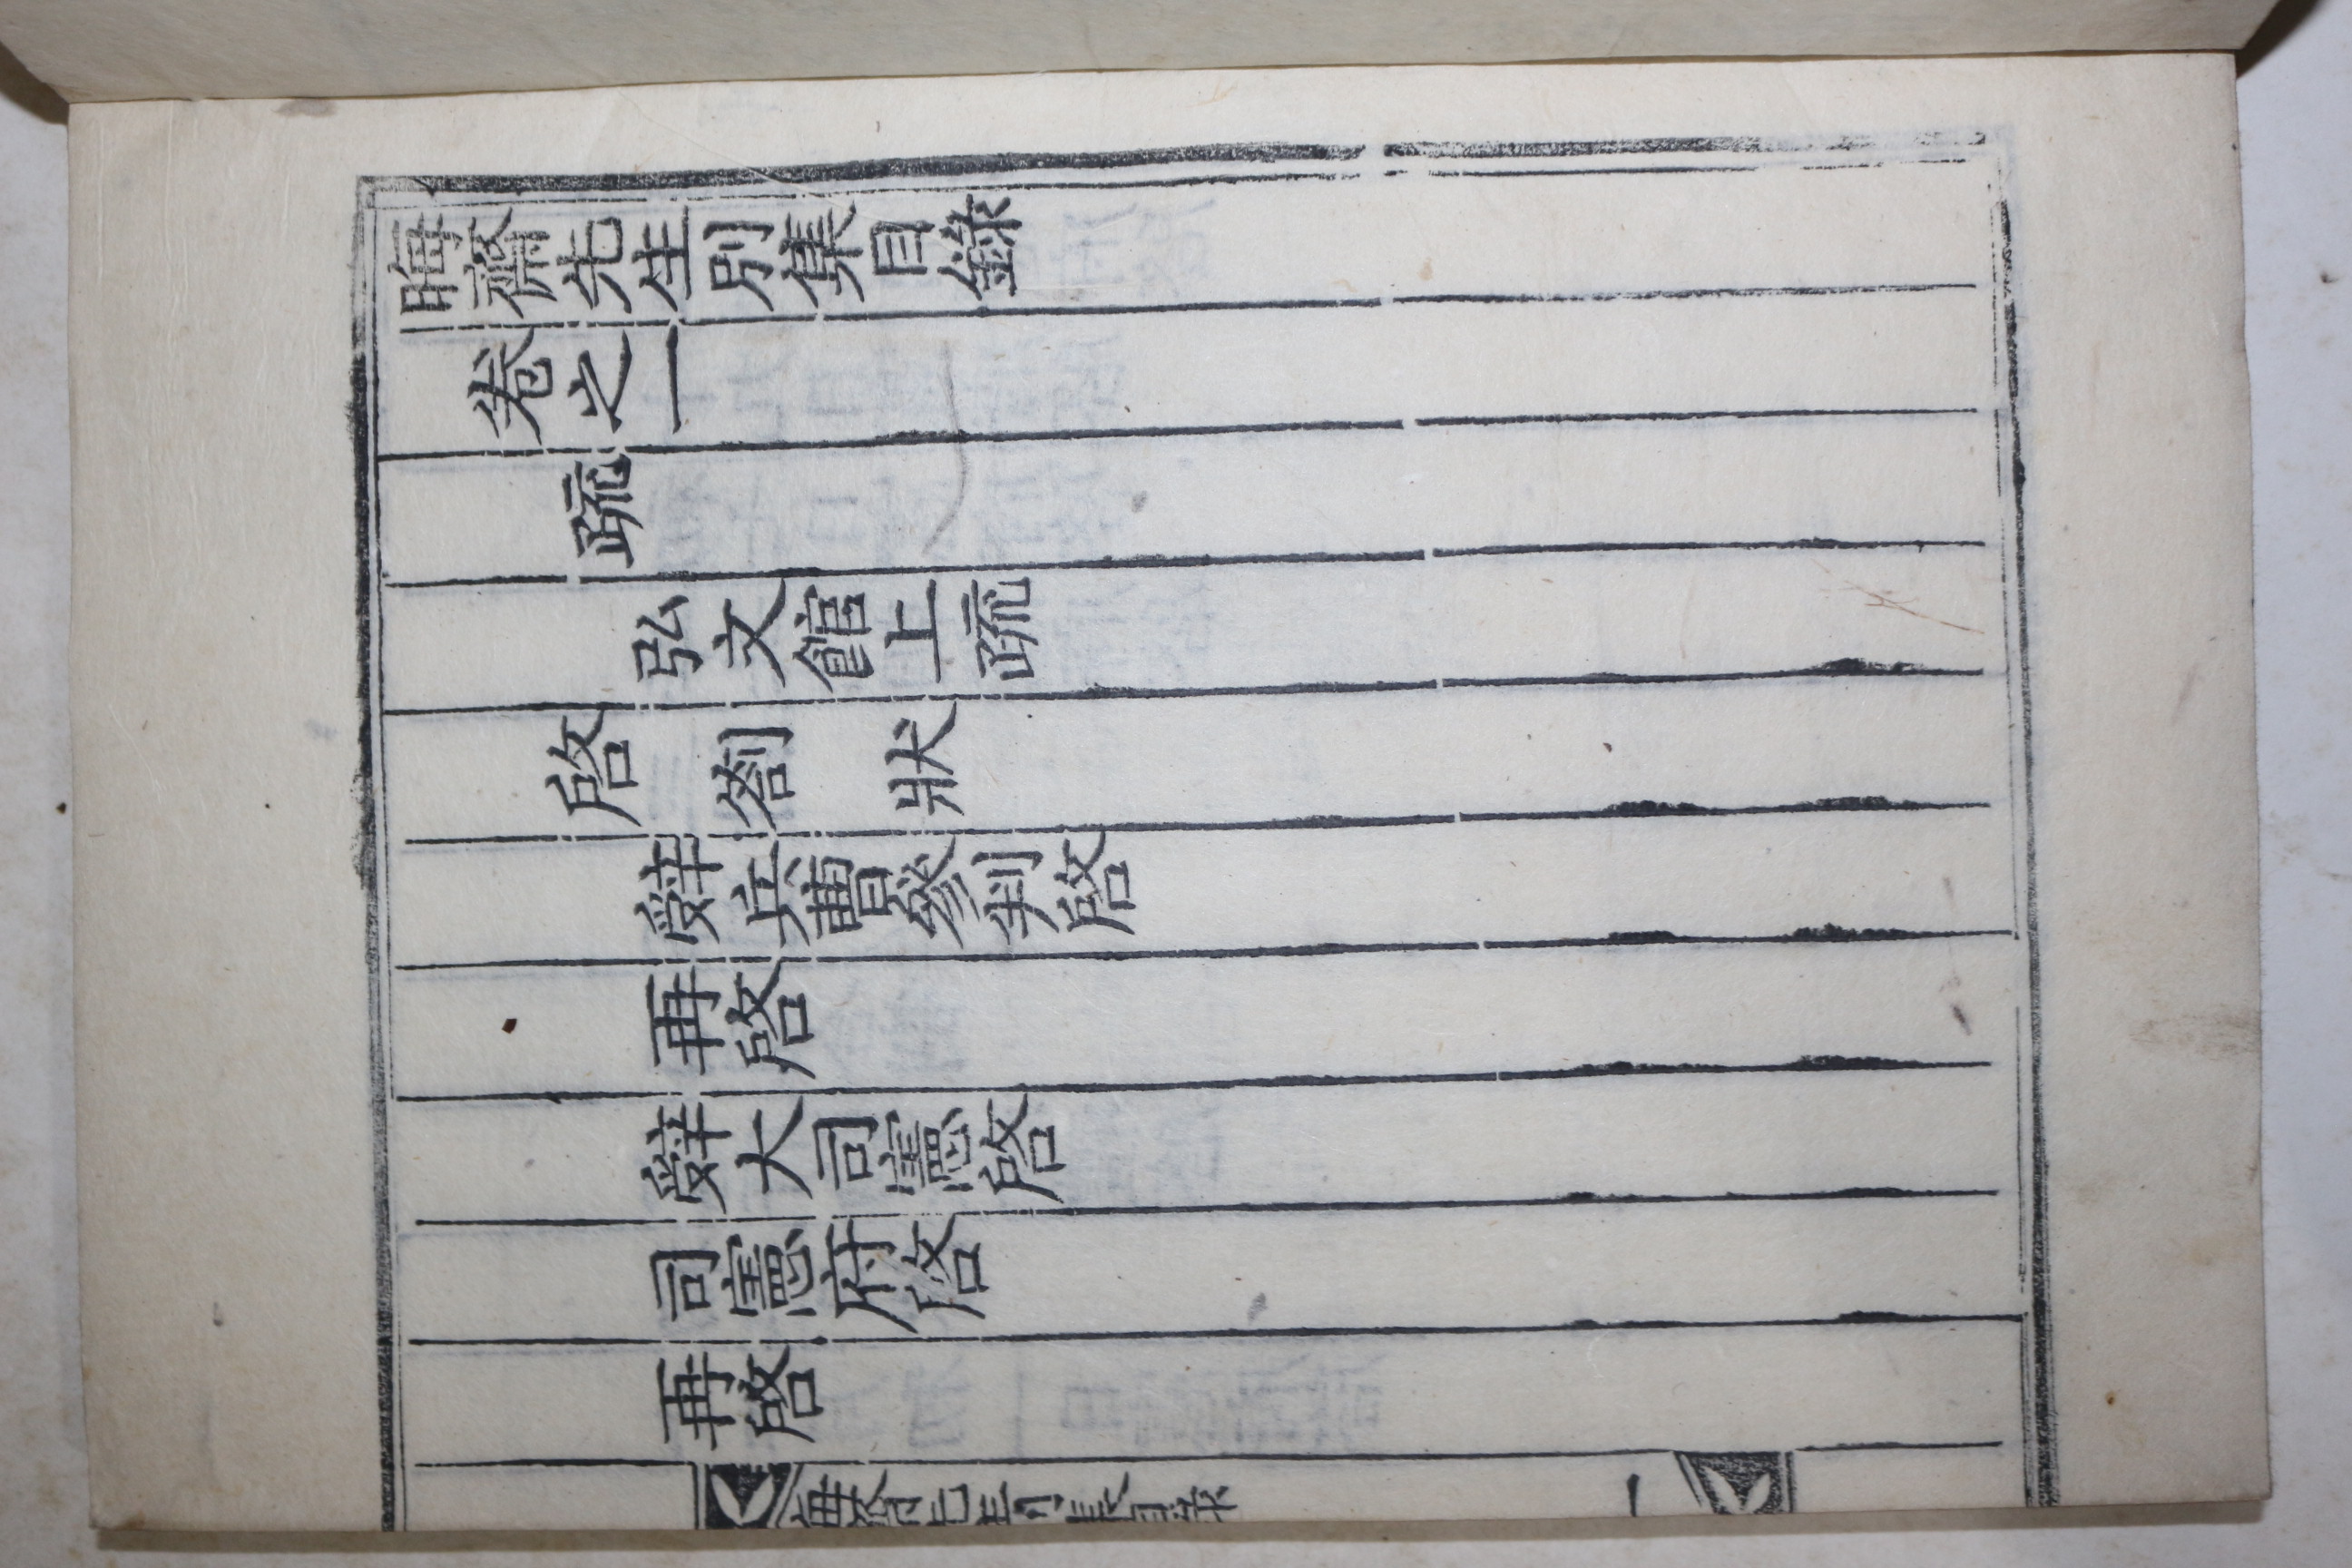 晦齋先生別集目錄
卷之一
疏
弘文館上疏
啓 劄 狀
辭兵曹參判啓
再啓
辭大司憲啓
司憲府啓
再啓
晦齋先生別集目錄 一